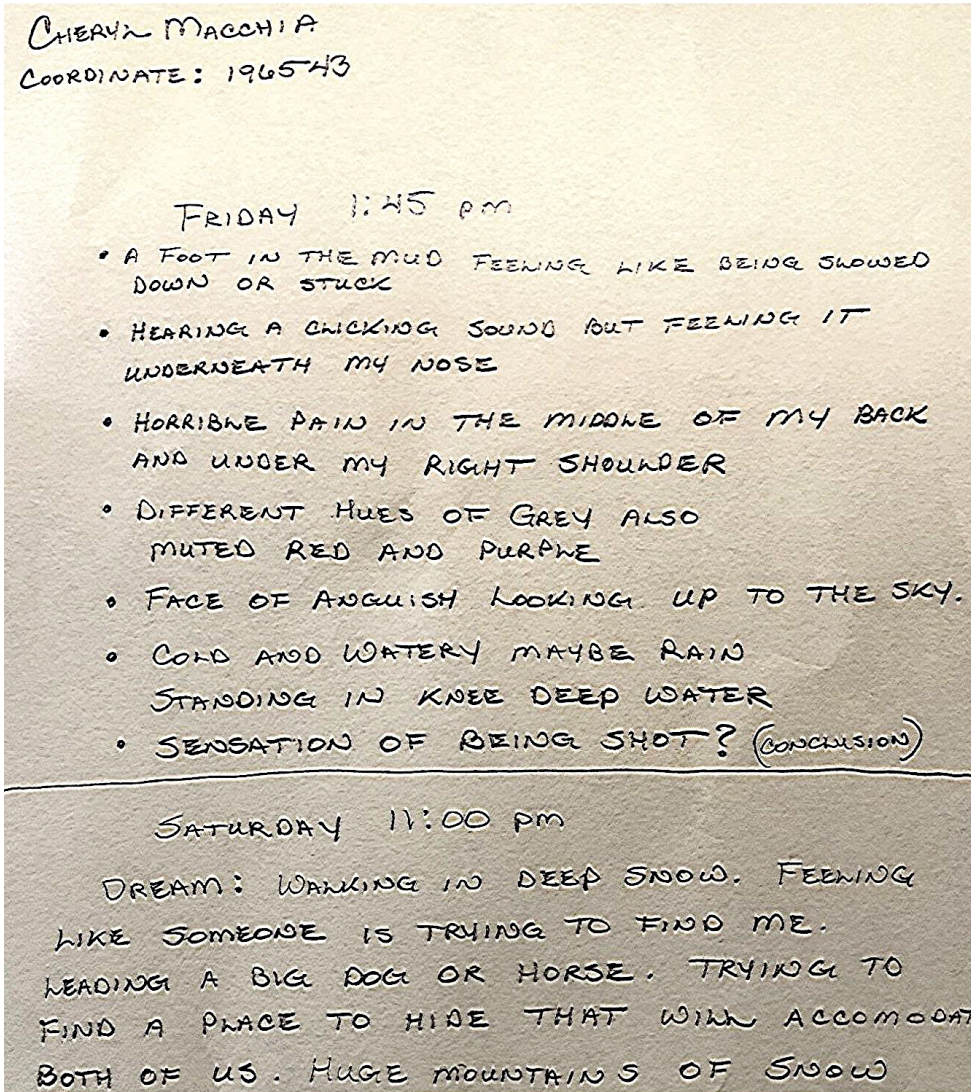 CHERYL MACCHIA
COORDINATE: 196543
FRIDAY 1:45 pm
• A FOOT IN THE MUD FEELING LIKE BEING SLOWED
DOWN OR STUCK
• HEARING A CLICKING SOUND BUT FEELING IT
UNDERNEATH MY NOSE
• HORRIBLE PAIN IN THE MIDDLE OF MY BACK
AND UNDER MY RIGHT SHOULDER
• DIFFERENT HUES OF GREY ALSO
MUTED RED AND PURPLE
• FACE OF ANGUISH LOOKING UP TO THE SKY.
• COLD AND WATERY MAYBE RAIN
STANDING IN KNEE DEEP WATER
• SENSATION OF BEING SHOT? (CONCLUSION)
SATURDAY 11:00 pm
DREAM: WALKING IN DEEP SNOW. FEELING
LIKE SOMEONE IS TRYING TO FIND ME.
LEADING A BIG DOG OR HORSE. TRYING TO
FIND A PLACE TO HIDE THAT WILL ACCOMODAT
BOTH OF US. HUGE MOUNTAINS OF SNOW